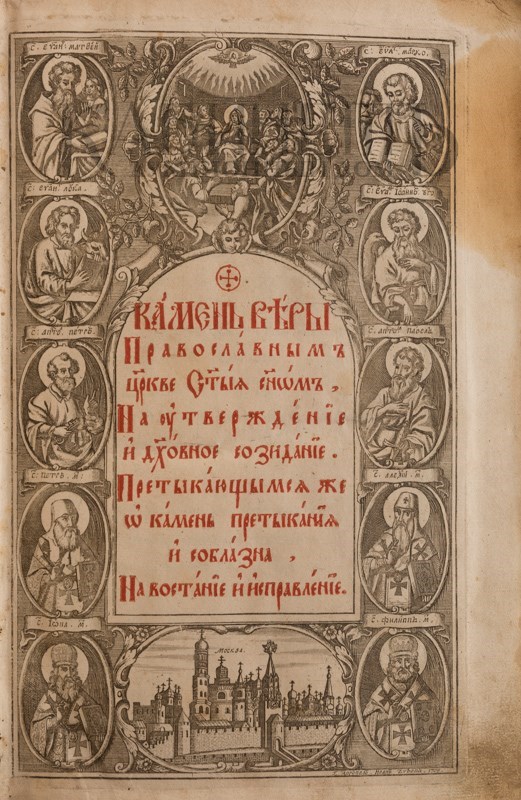 С: ЕУАН: МАТѲЕЙ
С: ЕУА: МАРКО.
С: ЕУАН: ЛУКА.
С: АПО: ПЕТРЪ.
С: АПО: ПАВЕЛЪ
С: ПЕТРЪ. М:
С: АЛЕѮІЙ. М:
С: ІѠНА. М:
С: ФИЛИППЪ. М:
КА́МЕНЬ ВѢ́РЫ
Правосла́внымъ
цр҃кве Ст҃ы́ѧ сн҃ѡ́мъ ,
На оу҆твержде́нїе
и҆ дх҃о́вное созида́нїе .
Претыка́ющымсѧ же
ѡ҆ ка́мень претыка́нїѧ
и҆ собла́зна ,
На воста́нїе и҆ и҆справле́нїе .
МОСКВА.